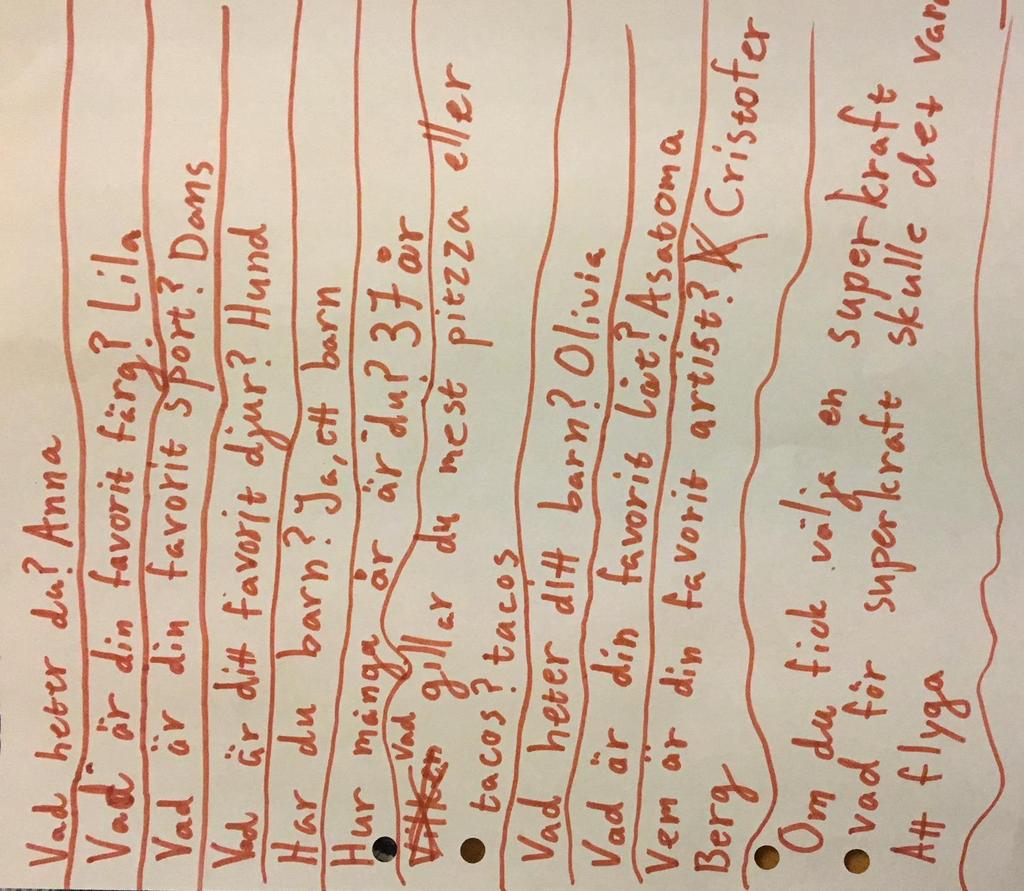 Vad heter du? Anna
Vad är din favorit färg? Lila
Vad är din favorit sport? Dans
Vad är ditt favorit djur? Hund
Har du barn? Ja, ett barn
Hur många år är du? 37 år
Vad gillar du mest pitzza eller
tacos? tacos
Vad heter ditt barn? Olivia
Vad är din favorit låt? Asatoma
Vem är din favorit artist? Cristofer
Berg
Om du fick välja en super kraft
vad för superkraft skulle det vara
Att flyga